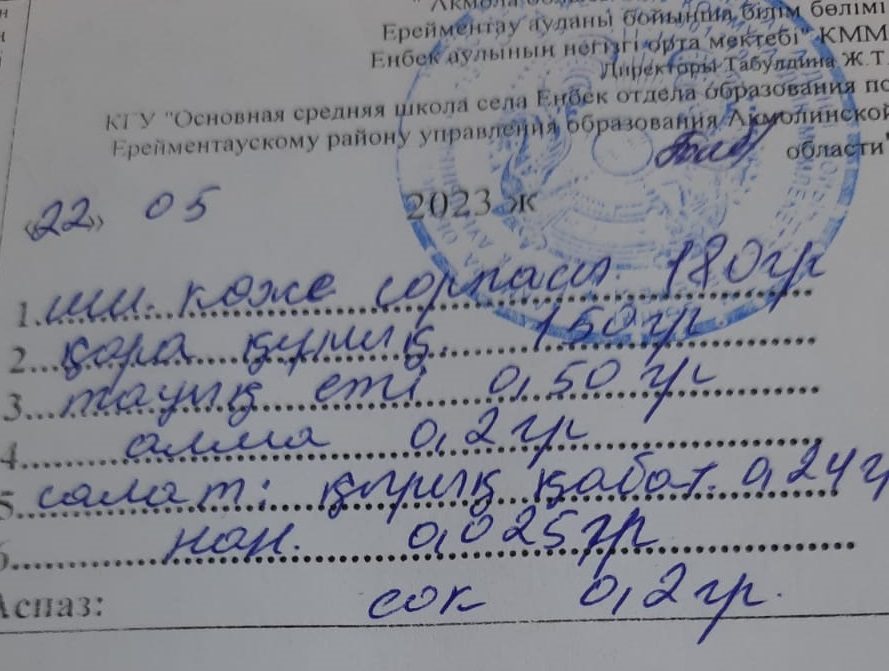 " Ақмола
Ерейментау ауданы бойынша білім бөлімі
Еңбек аулының негізгі орта мектебі" КММ
Директоры Табулдина Ж.Т.
КГУ "Основная средняя школа села Еңбек отдела образования по
Ерейментаускому району управления образования Акмолинской
области"
«22» 05 2023 ж
1. көже сорпасы 180гр
2. қара құмық 150гр
3. тауық еті 0,50 гр
4. алма 0,2гр
5. салат: қырық қабат. 0,24г
6. нан. 0,025гр
Аспаз: сок 0,2гр.